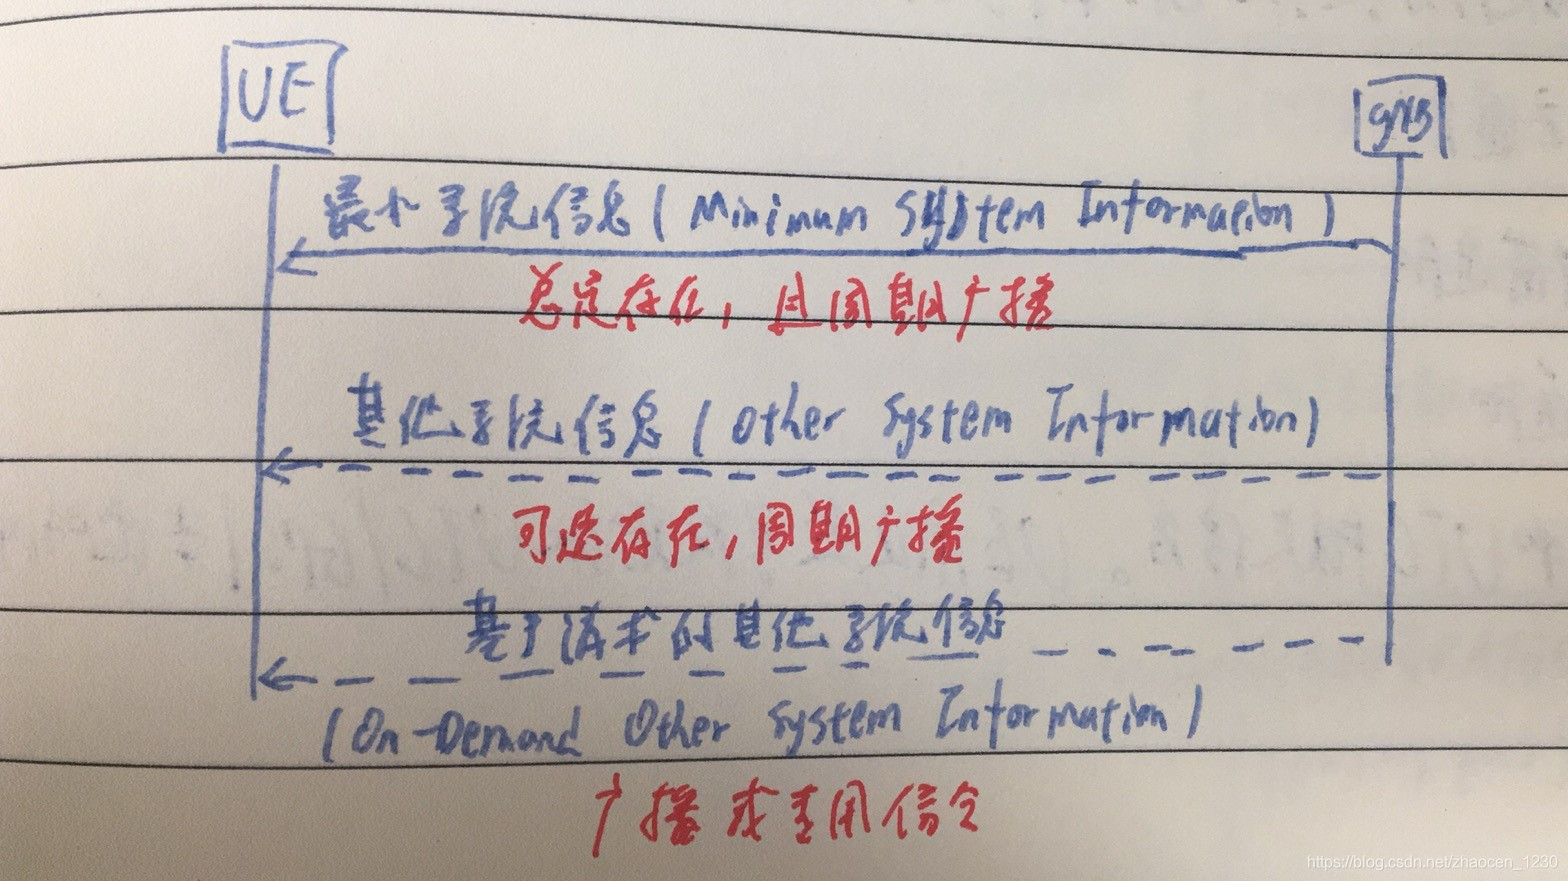 UE
gNB
最小系统信息(Minimum System Information)
总是存在,且周期广播
其他系统信息(Other System Information)
可选存在,周期广播
基于请求的其他系统信息
(On-Demand Other System Information)
广播或专用信令
https://blog.csdn.net/zhaocen_1230